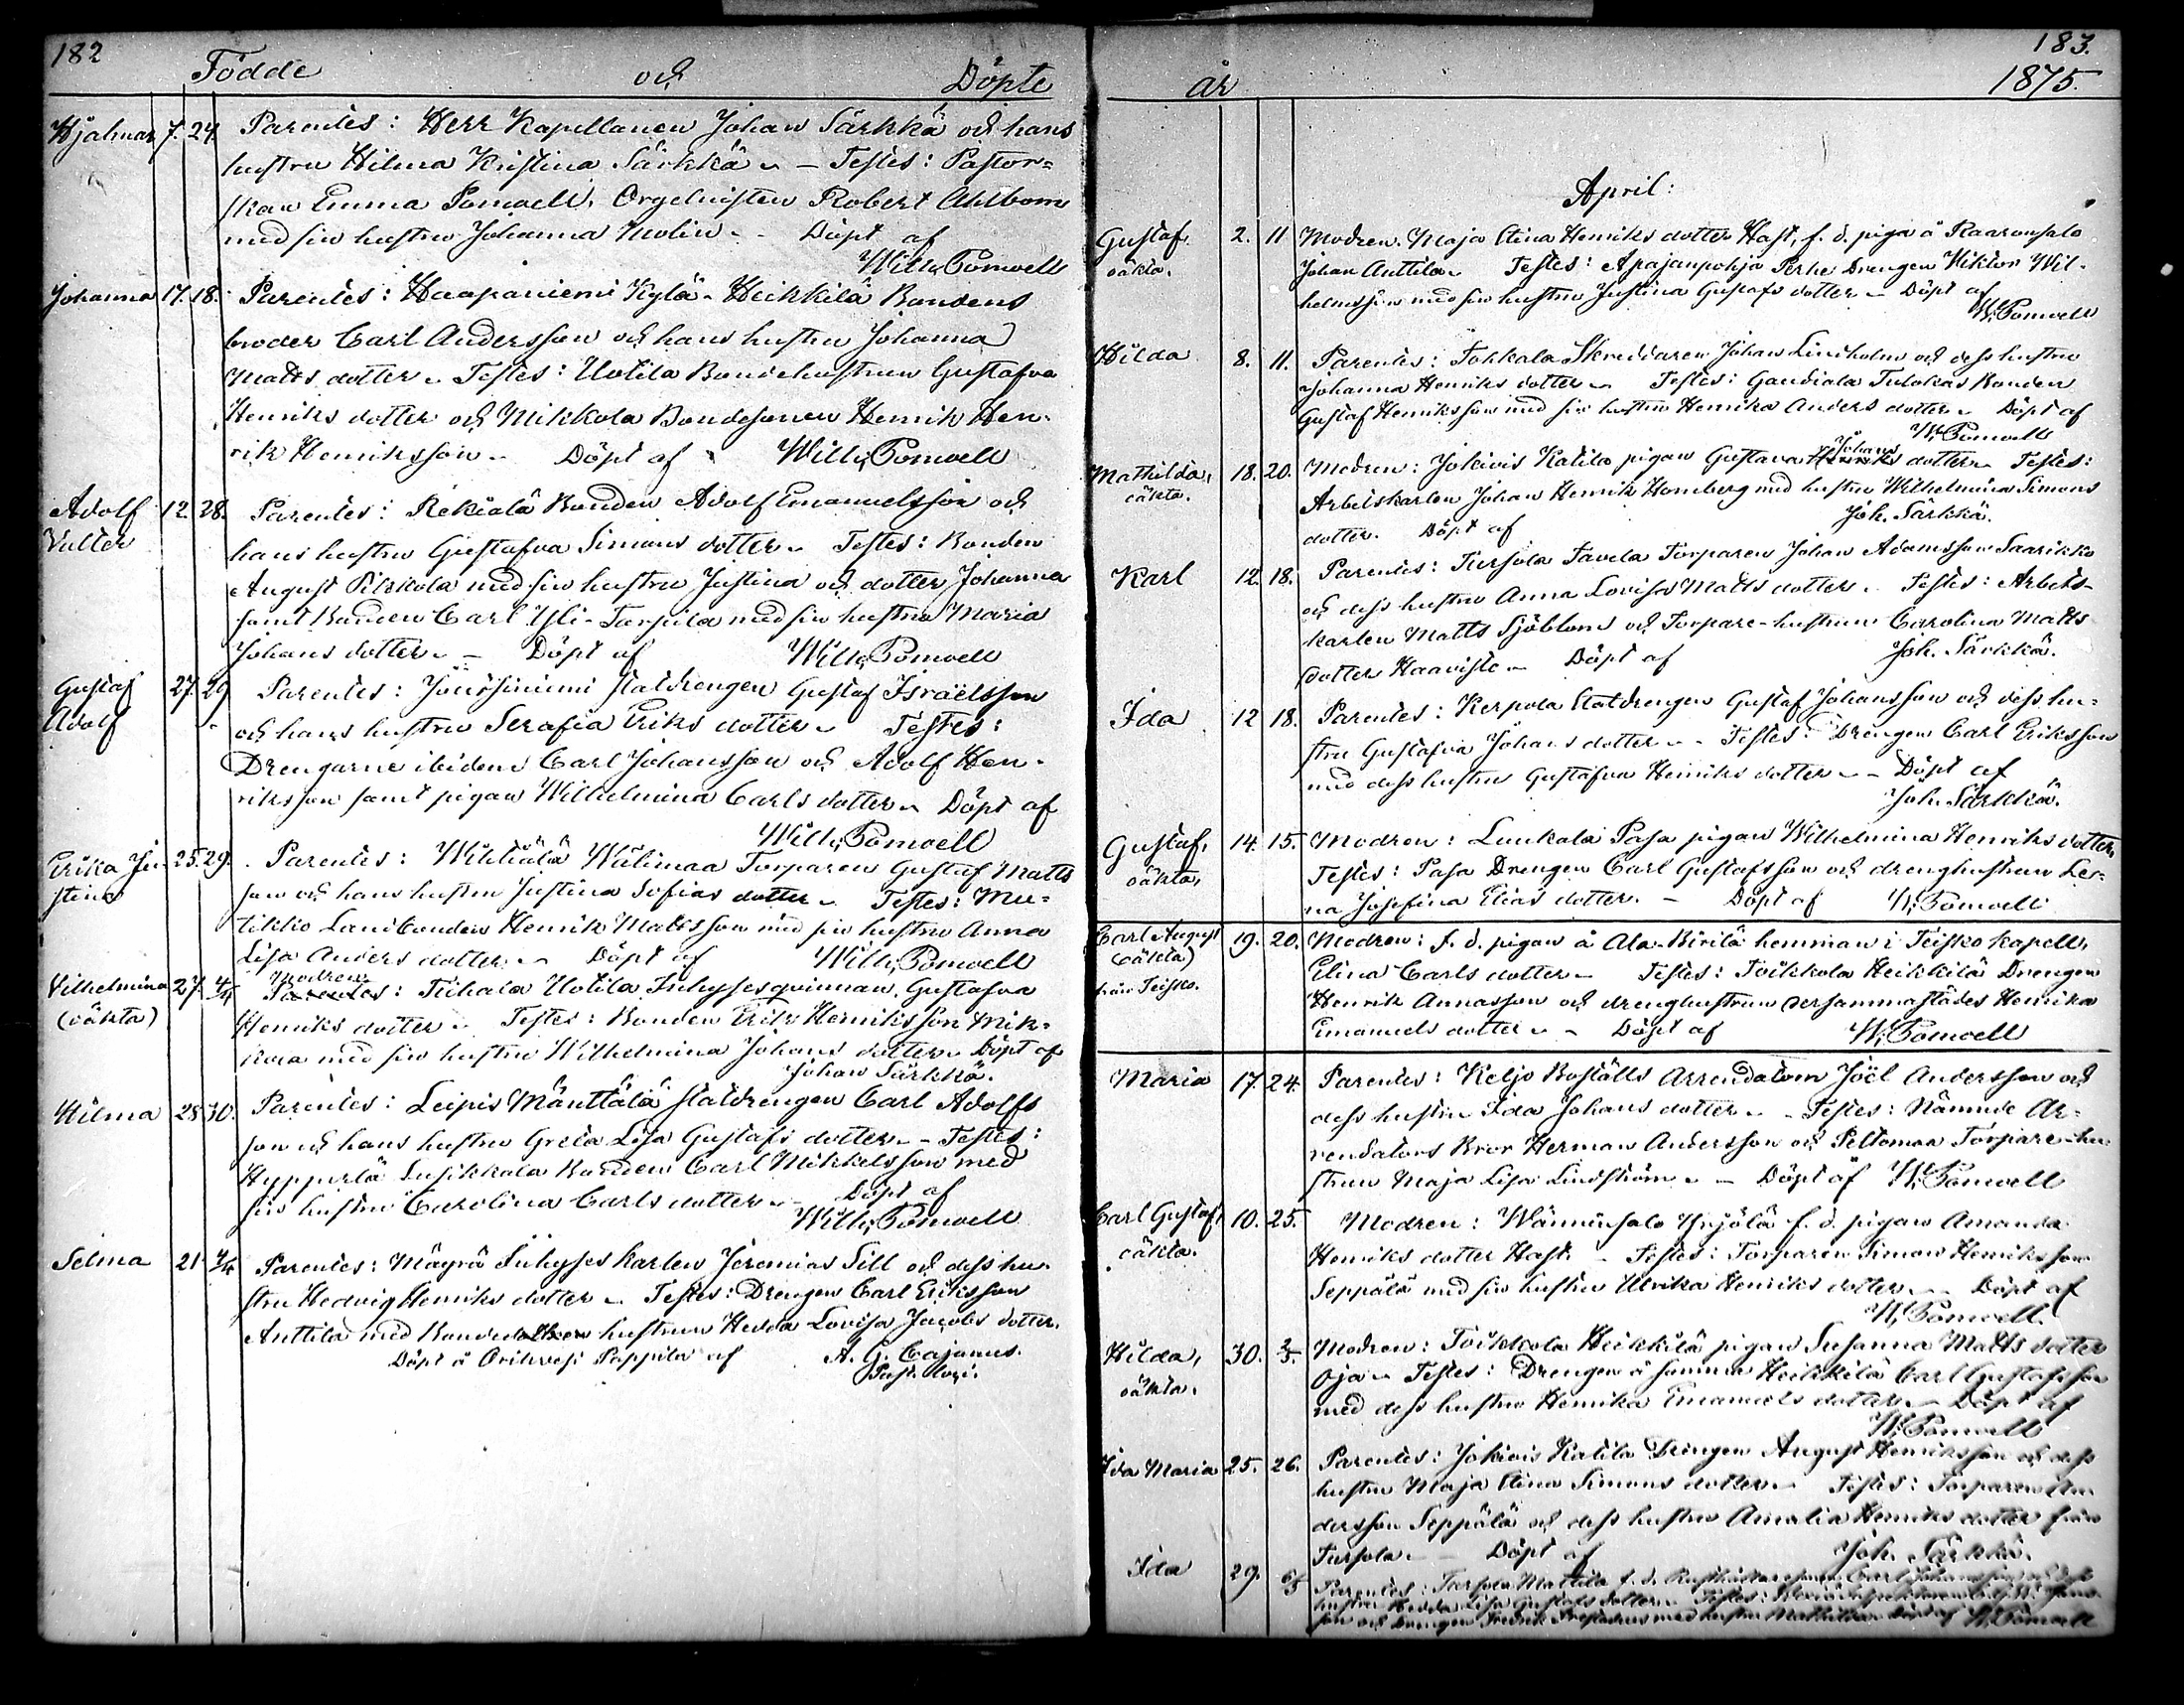 182
Födde och Döpte
Hjalmar 7. 24. Parentes: Herr Kapellanen Johan Särkkä och hans
hustru Hilma Kristina Särkkä. – Testes: Pastor-
skan Emma Pomoell, Orgelnisten Robert Ahlbom
med sin hustru Johanna Molin. – Döpt af
Wilh. Pomoell
Johanna 17. 18. Parentes: Haapaniemi Kylä-Heikkilä Bondens
broder Carl Andersson och hans hustru Johanna
Matts dotter. Testes: Uotila Bondehustrun Gustafva
Henriks dotter och Mikkola Bondesonen Henrik Hen-
rik Henriksson. – Döpt af Wilh. Pomoell
Adolf 12. 28. Parentes: Rekiälä Bonden Adolf Emanuelsson och
hans hustru Gustafva Simons dotter. Testes: Bonden
August Pilskola med sin hustru Justina och dotter Johanna
samt Bonden Carl Yli-Tursula med sin hustru Maria
Johans dotter. – Döpt af Wilh. Pomoell
Gustaf 27. 29 Parentes: Jönssiniemi statdrengen Gustaf Israëlsson
Adolf och hans hustru Serafia Eriks dotter. Testes:
Drengarne ibidem Carl Johansson och Adolf Hen-
riksson samt pigan Wilhelmina Carls dotter. Döpt af
Wilh. Pomoell
Erika Ju- 25. 29. Parentes: Wihkiälä Wälimaa Torparen Gustaf Matts
stina son och hans hustru Justina Sofias dotter. Testes: Mu-
tikko Landbonden Henrik Mattsson med sin hustru Anna
Lisa Anders dotter. – Döpt af Wilh. Pomoell
Modren
Vilhelmina 27. 4/4 Parentes: Tiihala Uotila Inhysesqvinnan, Gustafva
(oäkta) Henriks dotter. Testes: Bonden Erik Henriksson Mik-
kola med sin hustru Wilhelmina Johans dotter. Döpt af
Johan Särkkä.
Hilma 28 30. Parentes: Leipis Mänttälä statdrengen Carl Adolfs
son och hans hustru Greta Lisa Gustafs dotter. – Testes:
Hyppärlä Bonden Carl Mikkelsson med
sin hustru Carolina Carls dotter. – Döpt af
Wilh. Pomoell
Selma 21 4/4 Parentes: Mäyrä Inhysses karlen Jeremias Sill och dess hu-
stru Hedvig Henriks dotter. Testes: Drengen Carl Eriksson
Anttila med Bonde hustrun Hedda Lovisa Jacobs dotter.
Döpt å Orihvesi Pappila af A. G. Cajanus.
183.
år 1875.
April:
Gustaf 2. 11 Modren. Maja Stina Henriks dotter Hast, f. d. piga å Kaaronsalo
oäkta. Johan Anttila. Testes: Apajanpohja Perhe Drengen Viktor Wil-
helmsson med sin hustru Justina Gustafs dotter. – Döpt af
W. Pomoell
Hilda 8. 11. Parentes: Tohkala Skreddaren Johan Lindholm och dess hustru
Johanna Henriks dotter. – Testes: Gandiala Tulokas Bonden
Gustaf Henriksson med sin hustru Henrika Anders dotter. – Döpt af
W. Pomoell
Johans
Mathilda, 18. 20. Modren: Jokiois Katila pigan Gustava Henriks dotter. Testes:
oäkta. Arbetskarlen Johan Henrik Homberg med hustru Wilhelmina Simons
dotter. Döpt af Joh. Särkkä.
Karl 12. 18. Parentes: Tursola Tavela Torparen Johan Adamsson Saarikko
och dess hustru Anna Lovisa Matts dotter. Testes: Arbets-
karlen Matts Sjöblom och Torpare-hustrun Carolina Matts
dotter Haavisto. – Döpt af Joh. Särkkä.
Ida 12 18. Parentes: Kerpola Statdrengen Gustaf Johansson och dess hu-
stru Gustafva Johans dotter. – Testes: Drengen Carl Eriksson
med dess hustru Gustafva Henriks dotter. – Döpt af
Joh. Särkkä.
Gustaf, 14. 15. Modren: Luukala Pasa pigan Wilhelmina Henriks dotter,
oäkta, Testes: Pasa Drengen Carl Gustafsson och drenghustrun Le-
na Josefina Elias dotter. – Döpt af W. Pomoell
Carl August 19. 20. Modren: f. d. pigan å Ala-Birilä hemman i Teisko kapell,
(oäkta) Elina Carls dotter – Testes: Toikkola Heikkilä Drengen
från Teisko. Henrik Annasson och drenghustrun dersammastädes Henrika
Emanuels dotter. – Döpt af W. Pomoell
Maria 17. 24. Parentes: Keljo Boställs Arrendatorn Joël Andersson och
dess hustru Ida Johans dotter. – Testes: Nämnde Ar-
rendators Bror Herman Andersson och Peltomaa Torpare-hu-
strun Maja Lisa Lindström. – Döpt af W. Pomoell
Carl Gustaf, 10. 25. Modren: Wänninsalo Yrjölä f. d. pigan Amanda
oäkta. Henriks dotter Hast. – Testes: Torparen Simon Henriksson
Seppälä med sin hustru Ulrika Henriks dotter. – Döpt af
W. Pomoell.
Hilda, 30. 2/5. Modren: Toikkola Heikkilä pigan Susanna Matts dotter
oäkta. Oja. – Testes: Drengen å samma Heikkilä Carl Gustafsson
med dess hustru Henrika Emanuels dotter. – Döpt af
W. Pomoell
Ida Maria 25. 26. Parentes: Jokiois Katila Drengen August Henriksson och dess
hustru Maja Stina Simons dotter. – Testes: Torparen An-
dersson Seppälä och dess hustru Amalia Henriks dotter från
Tursola. – Döpt af Joh. Särkkä.
Ida 29. 6/5 Parentes: Tursola Mattila f. d. Carl Johansson och dess
hustru Hedda Lisa Gustafs dotter. Testes:
son och Drengen Fredrik med hustru Mathilda. Döpt af W. Pomoell